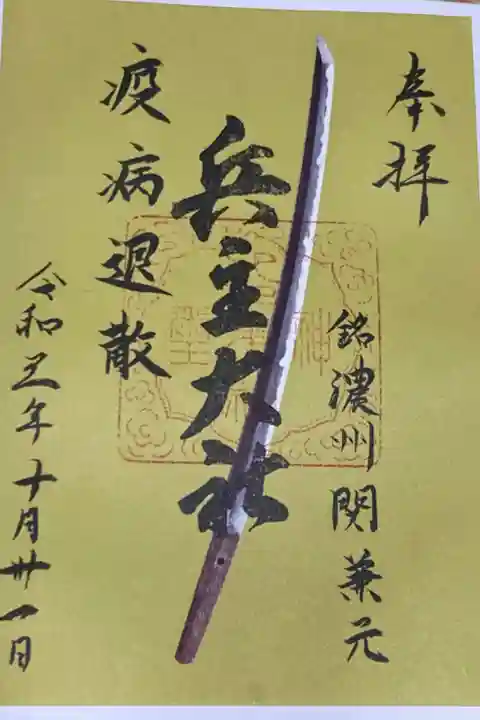 奉拝
銘濃州関兼元
兵主大社
疫病退散
令和五年十月卅一日